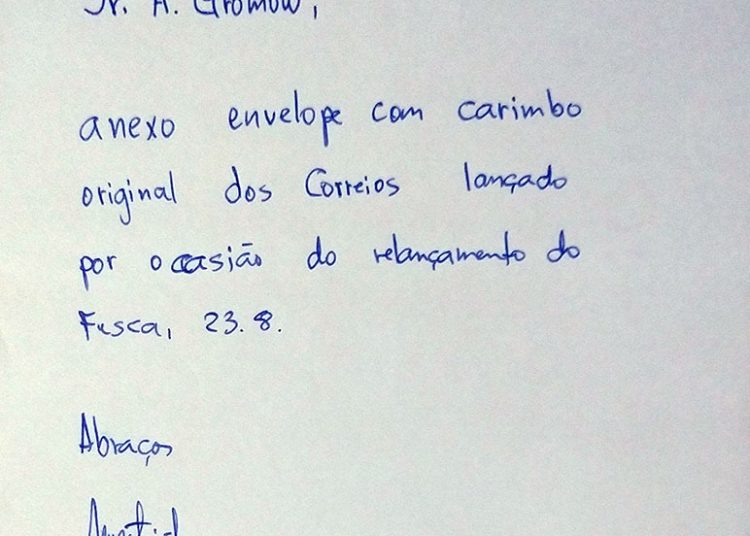 Sr. A. Gromow,
anexo envelope com carimbo
original dos Correios lançado
por occasião do relançamento do
Fusca, 23.8.
Abraços